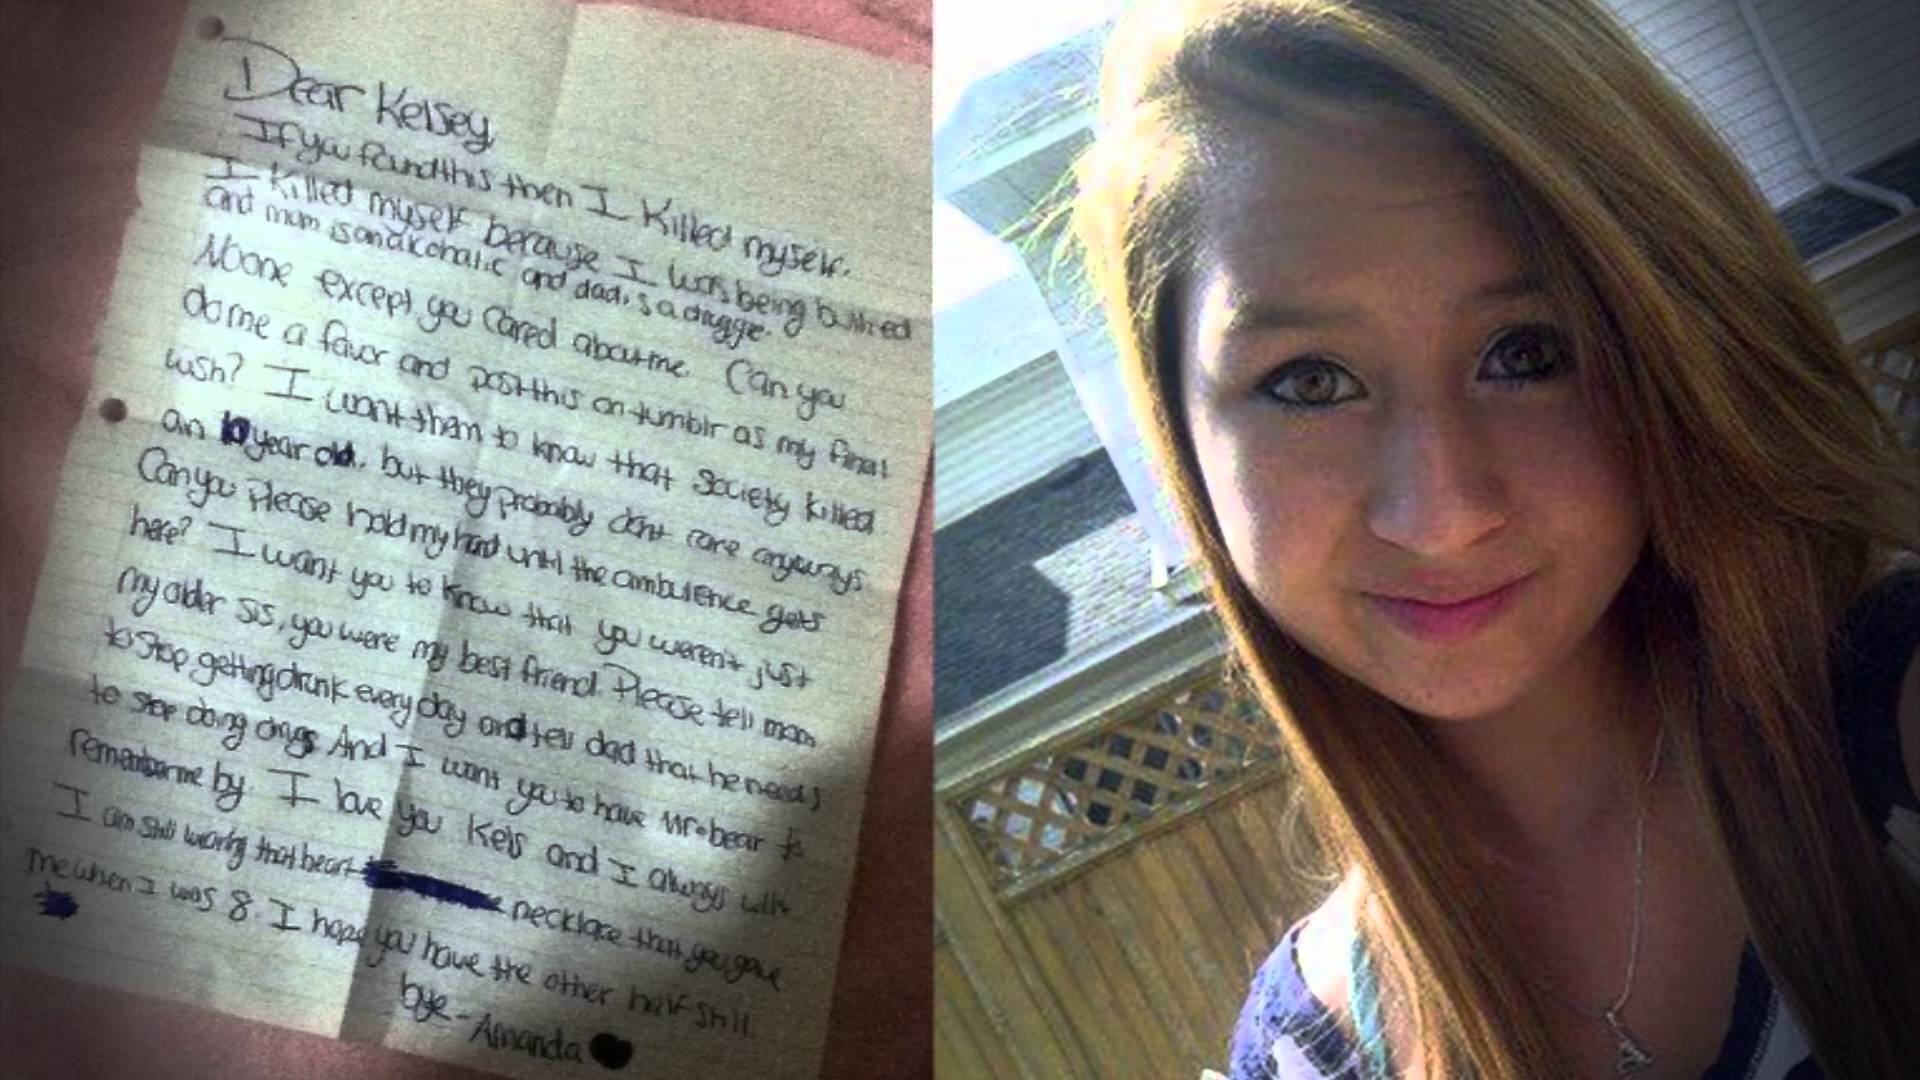 Dear Kelsey
If you found this then I Killed myself.
I Killed myself because I was being bullied
and mum is an alcohalic and dad is a druggie.
Noone except you cared about me. Can you
do me a favor and post this on tumblr as my final
wish? I want them to know that society killed
an year old. but they probably dont care anyways.
Can you please hold my hand until the ambulence gets
here? I want you to know that you weren't just
my older sis, you were my best friend. Please tell mom
to stop getting drunk every day and tell dad that he needs
to stop doing drugs And I want you to have Mr.bear to
remember me by. I love you Kels and I always will.
I am still waring that heart necklace that you gave
me when I was 8. I hope you have the other half still.
bye - Amanda
A